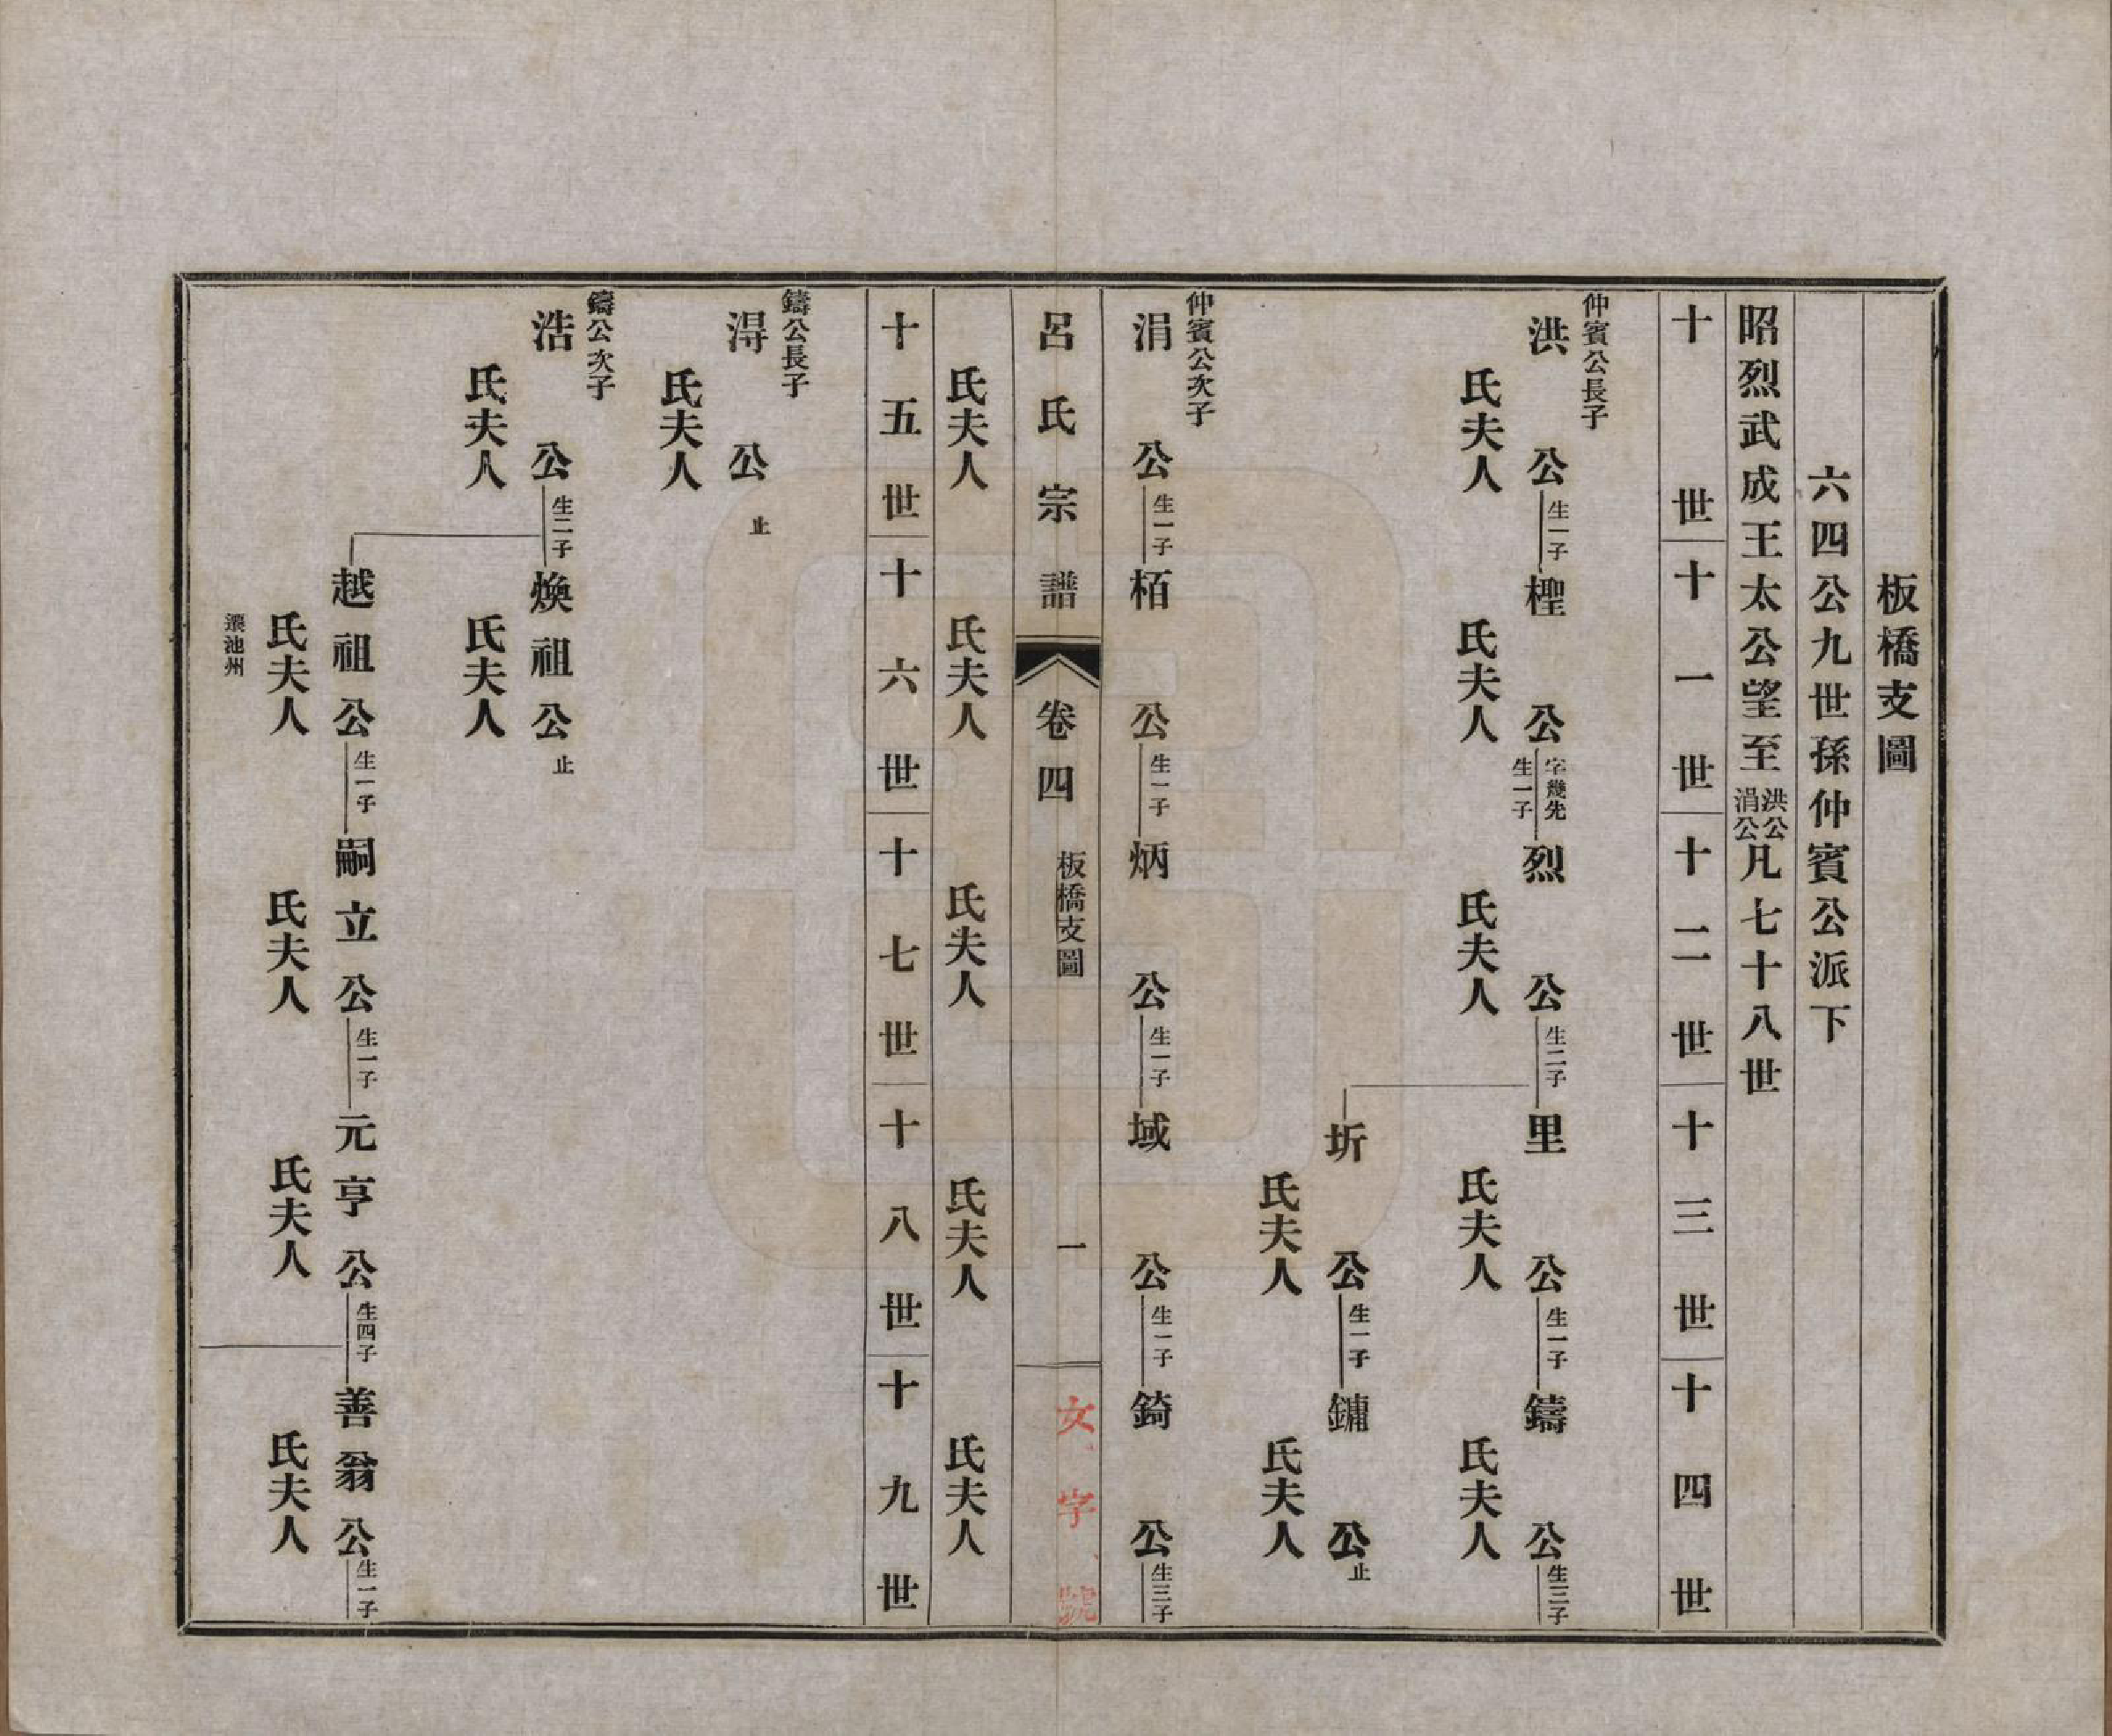 板橋支圖
六四公九世孫仲賓公派下
昭烈武成王太公望至洪公涓公凡七十八世
十世 十一世 十二世 十三世 十四世
仲賓公長子
洪公生一子 檉公字幾先生一子 烈公生二子 里公生一子 鑄公生三子
氏夫人 氏夫人 氏夫人 氏夫人 氏夫人
圻公生一子 鏞公止
氏夫人 氏夫人
仲賓公次子
涓公生一子 栢公生一子 炳公生一子 域公生一子 錡公生三子
呂氏宗譜 卷四 板橋支圖 一
文字號
氏夫人 氏夫人 氏夫人 氏夫人 氏夫人
十五世 十六世 十七世 十八世 十九世
鑄公長子
潯公止
氏夫人
鑄公次子
浩公生二子 煥祖公止
氏夫人 氏夫人
越祖公生一子 嗣立公生一子 元亨公生四子 善翁公生一子
氏夫人 氏夫人 氏夫人 氏夫人
池州